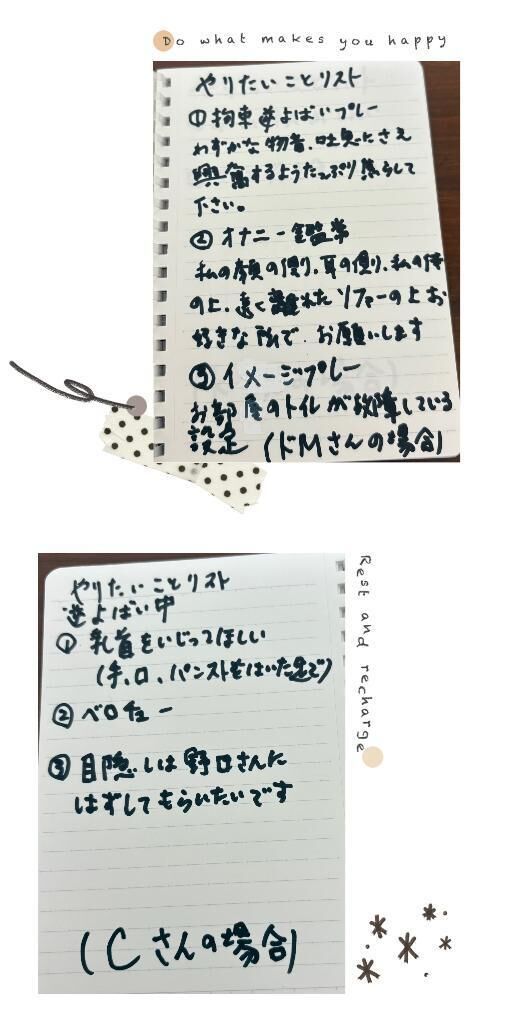 Do what makes you happy
やりたいことリスト
①拘束逆よばいプレー
わずかな物音、吐息にさえ
興奮するようたっぷり焦らして
下さい。
②オナニー鑑賞
私の顔の便り、耳の便り、私の体
の上、遠く離れたソファーの上お
好きな所で、お願いします
③イメージプレー
お部屋のトイレが故障している
設定(ドMさんの場合)
やりたいことリスト
逆よばい中
①乳首をいじってほしい
(手、口、パンストをはいた足で)
②ベロチュー
③目隠しは野口さんに
はずしてもらいたいです
(Cさんの場合)
Rest and recharge